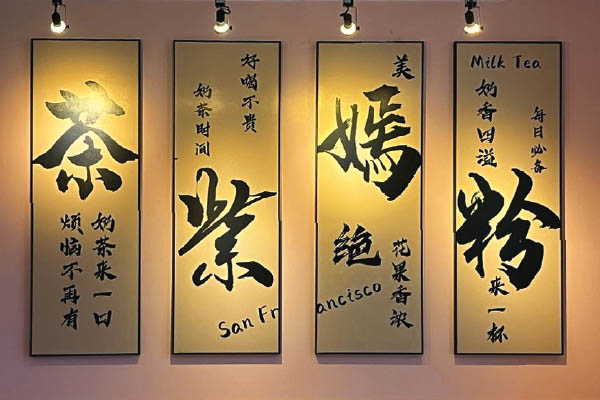 茶
奶茶来一口
烦恼不再有
好喝不贵
奶茶时间
紫
San Francisco
美
嫣
绝
花果香浓
Milk Tea
每日必备
奶香四溢
粉
来一杯